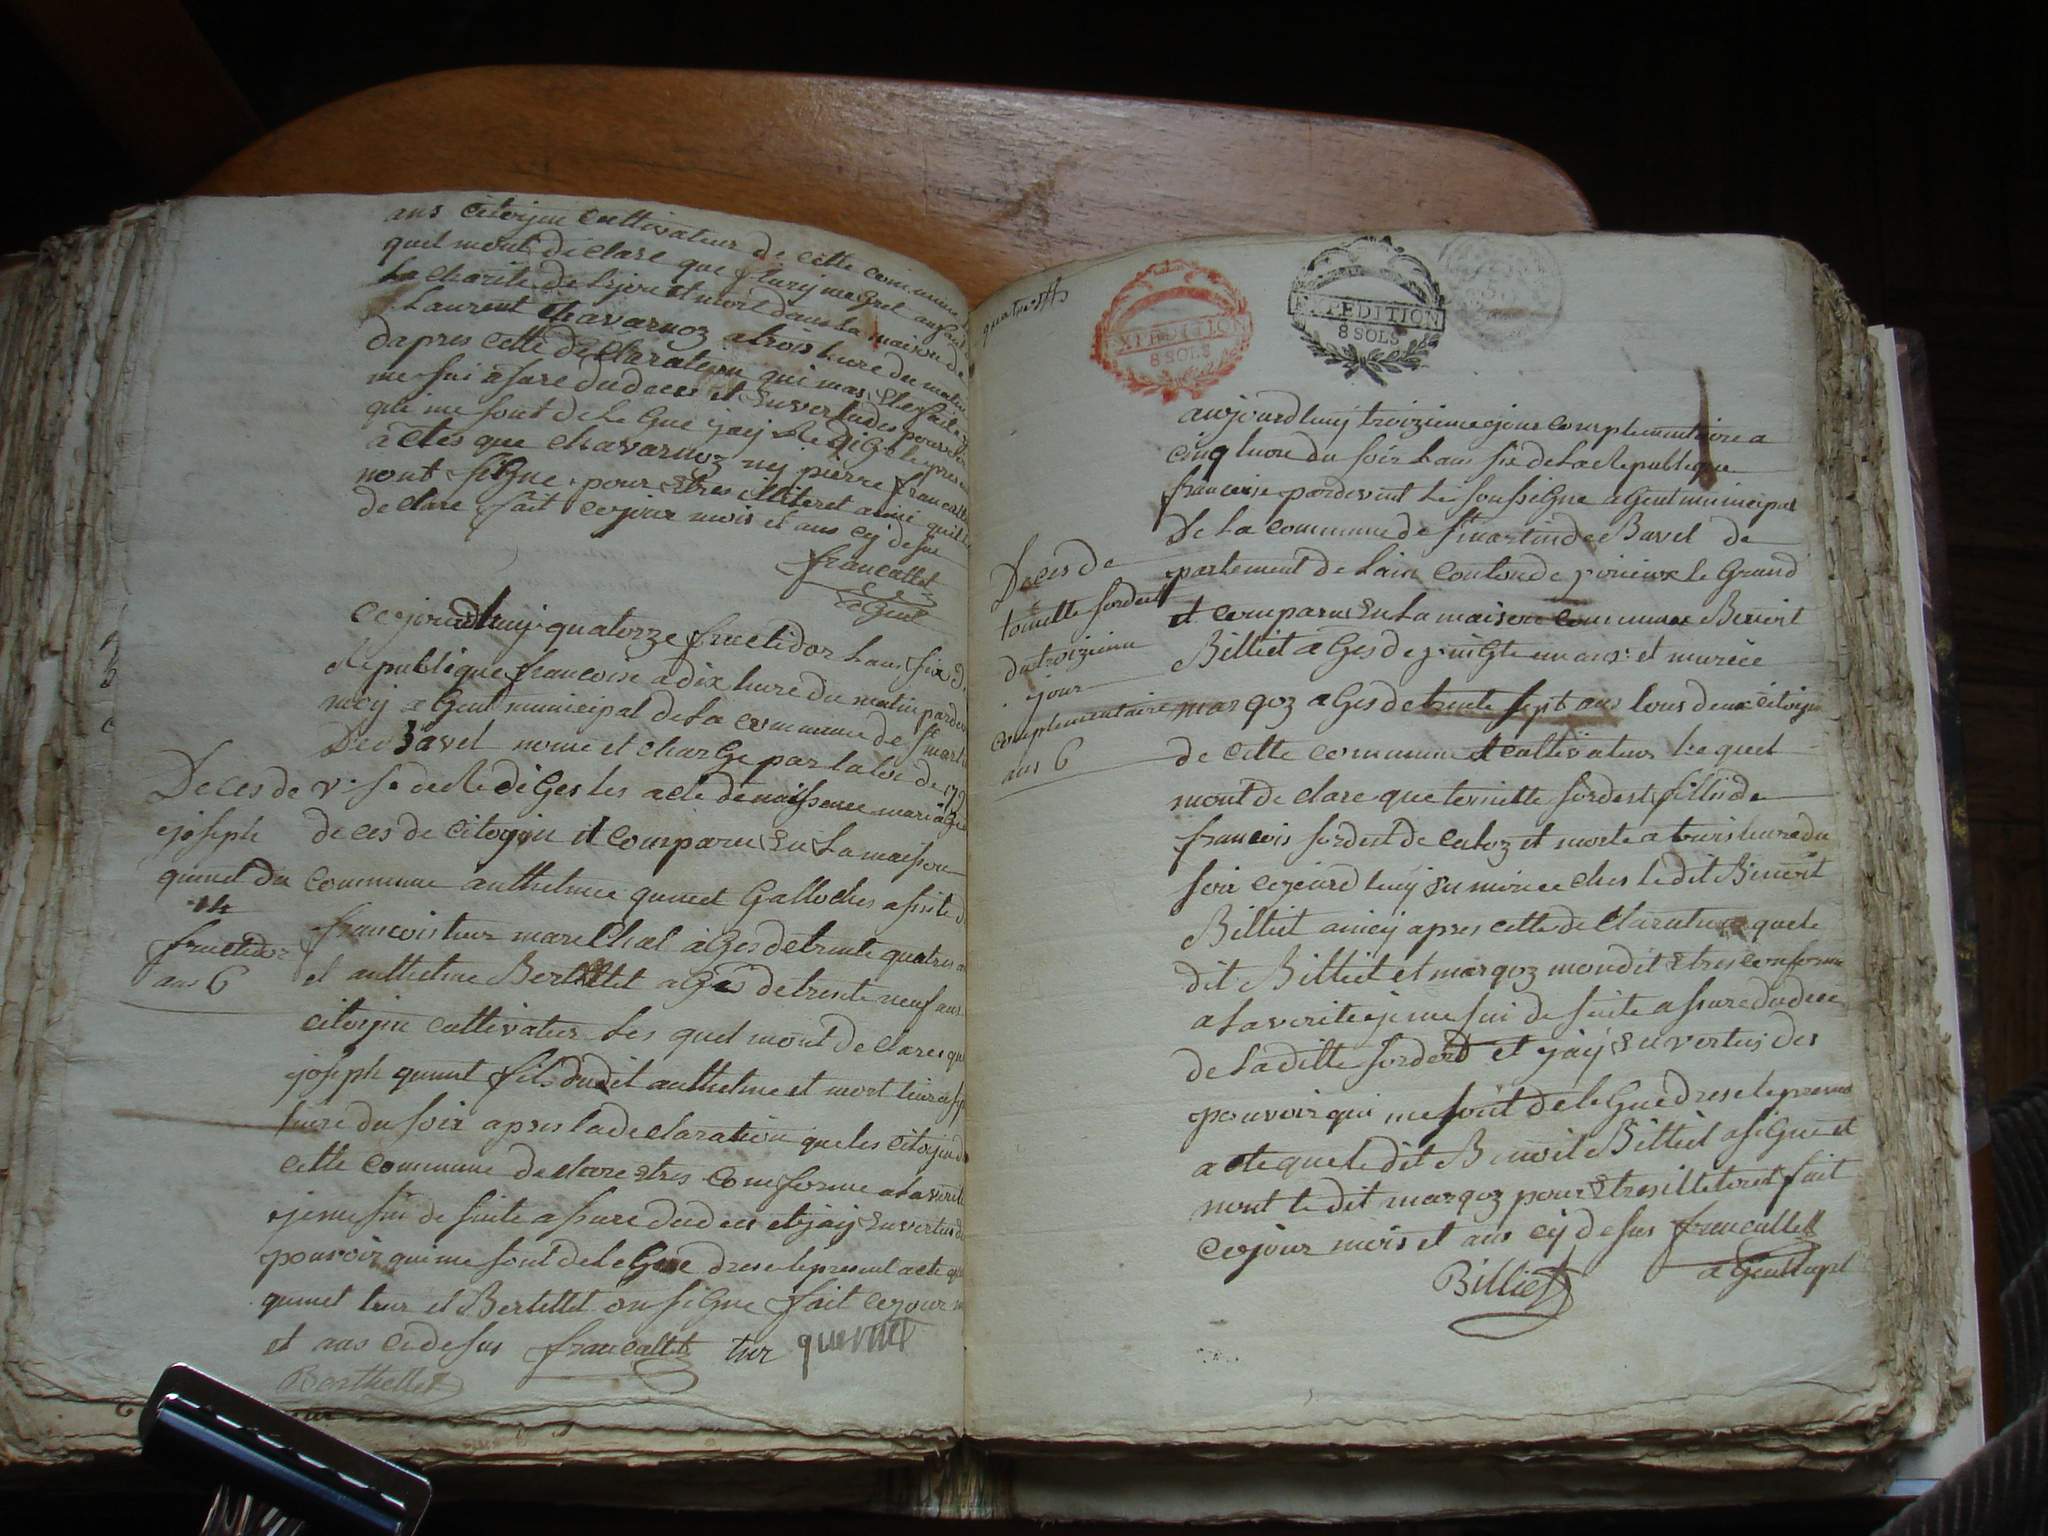 ans citoyin cultivateur de cette commune
quel mont de clare que flury negret anfant de
La charité de Lijon et mort dans La maison de
Laurent Chavarnoz a trois heure du matin
dapres cette de Claration qui mas Eté faite je
me sui asure du deces et En vertu des pouvoir
qui me sont de Le Gué jaij Re diGé le presen
actes que Chavarnoz nij pierre francallet
nont siGne pour Etres illiteret ainci quil
de clare fait ce jour mois et ans cij de sus
francallet
aGent
ce jourdhuij quatorze fructidor Lans six de
Republique francoise a dix heure du matin pardev
moij aGent municipal de La commune de St marti
De Bavel nomé et charGé par la loi de 179
v: st de Re diGes les acte de naissance mariage
deces de citoyin et comparu En La maison
commune anthelmee quinet Galloches asisté d
francois tur marechal aGes de trente quatres a
et anthelme Bertellet aGés de trente neuf ans
citoyin cultivateur Les quel mont de clares que
joseph quinet fils dudit anthelme et mort hier a
heure du soir apres la de claration que les citoyin d
cette commune de clare Etres comforme a La verité
je me sui de suite asuré du deces et jaij En vertu d
pouvoir qui me sont de le Gué dresé le present acte que
quinet tur et Bertellet on siGne fait ce jour m
et ans ci de sus francallet tur quernet
Berthellet
Deces de
joseph
quinet du
14
fructidor
ans 6
quatre ff
EXPEDITION
8 SOLS
EXPEDITION
8 SOLS
aujourdhuij troizieme jour complementaire a
cinq heure du soir Lans six de La Republique
francoise pardevent Le soussiGné aGent municipal
De La commune de St martin de Bavel de
partement de Lain Conton de virieux le Grand
et comparu En La maison commune Benoit
Billiet aGés de vingte un ans et
marqoz aGés de trente sept ans tous deux citoyin
de cette commune et cultivateur Le quel
mont de clare que toinette sordet fillie de
francois sordet de et morte a trois heure du
soir ce jourdhuij En ches ledit Benoit
Billiet aincij apres cette de claration que le
dit Billiet et marqoz mondit Etres conforme
a La verité je me sui de suite asuré du deces
de La ditte sordet et jaij En vertus des
pouvoir qui me sont de le Gué dresé le present
acte que le dit Benoit Billiet a siGne et
nont le dit marqoz pour Etres illeteret fait
ce jour mois et ans cij de sus francallett
Billiet
aGent mpl
Deces de
toinette sordett
du troizieme
jour
complementaire
ans 6